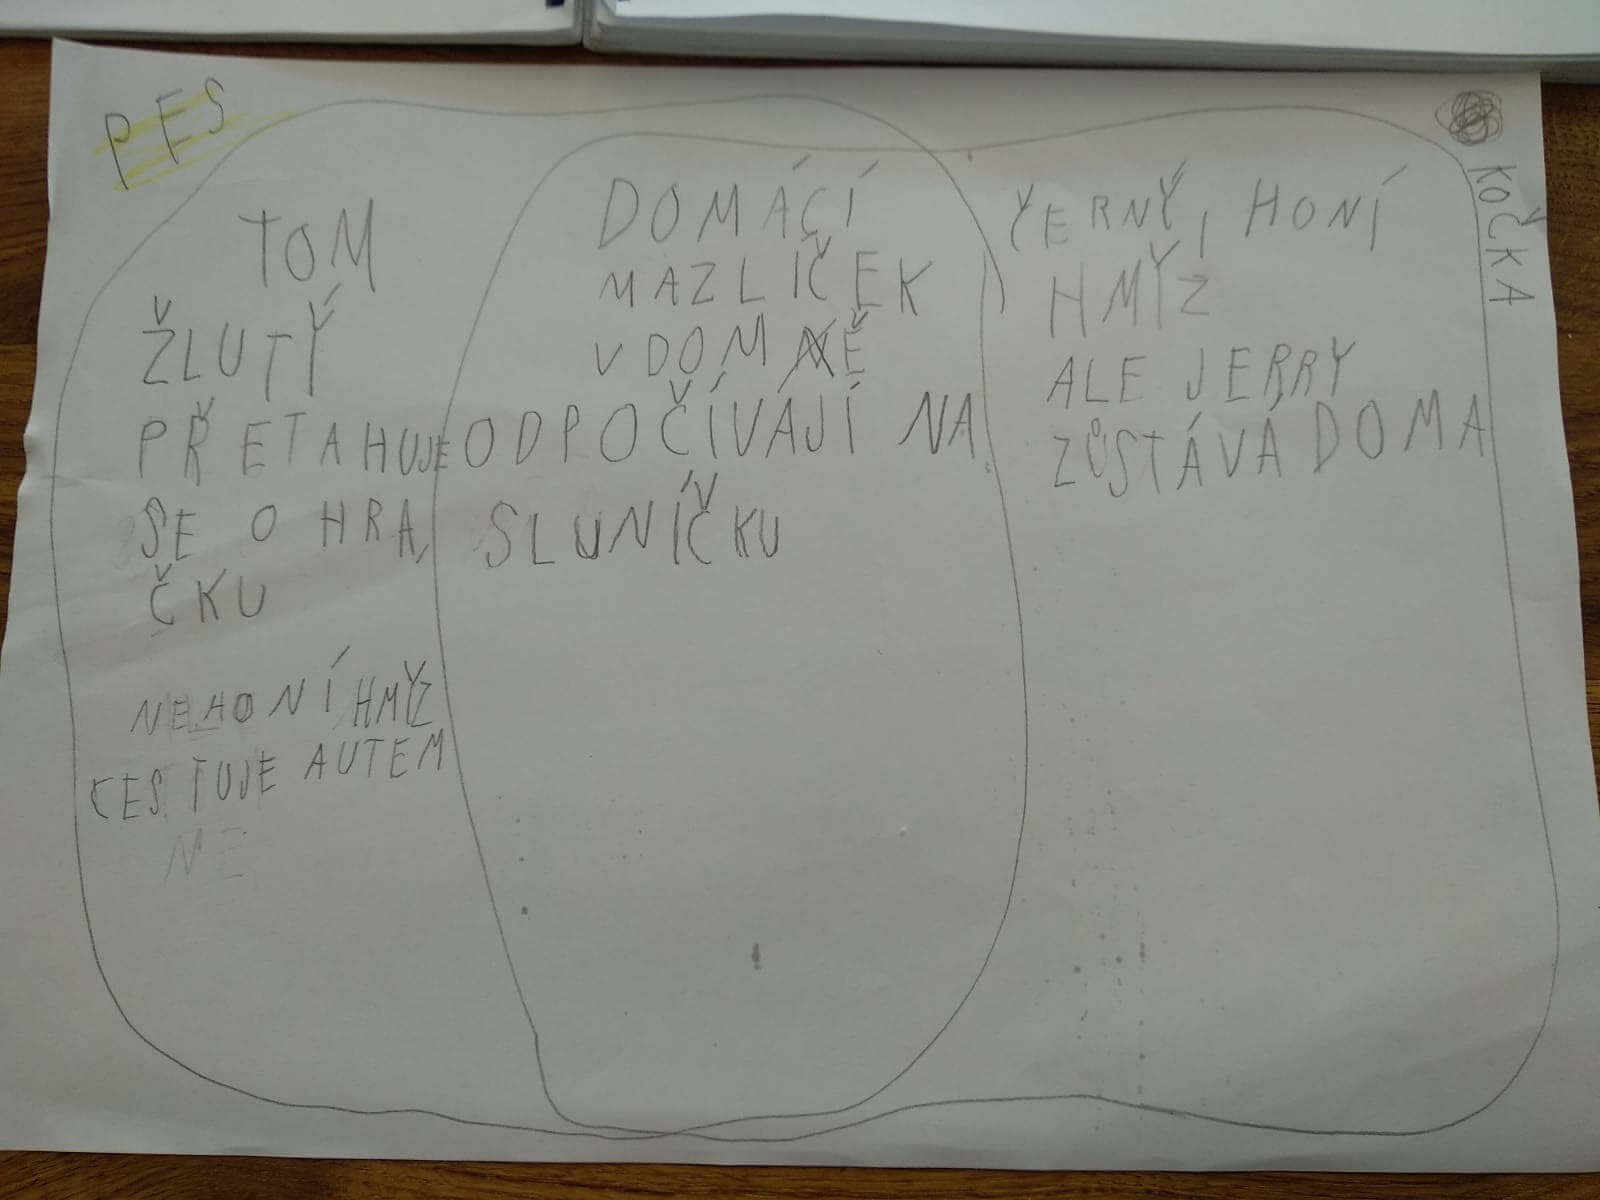 PES
TOM
ŽLUTÝ
PŘETAHUJE
SE O HRA,
ČKU
NEHONÍ HMYZ
CESTUJE AUTEM
NE
DOMÁCÍ
MAZLÍČEK
V DOMĚ
ODPOČÍVAJÍ NA
SLUNÍČKU
ČERNÝ, HONÍ
HMYZ
ALE JERRY
ZŮSTÁVÁ DOMA
KOČKA